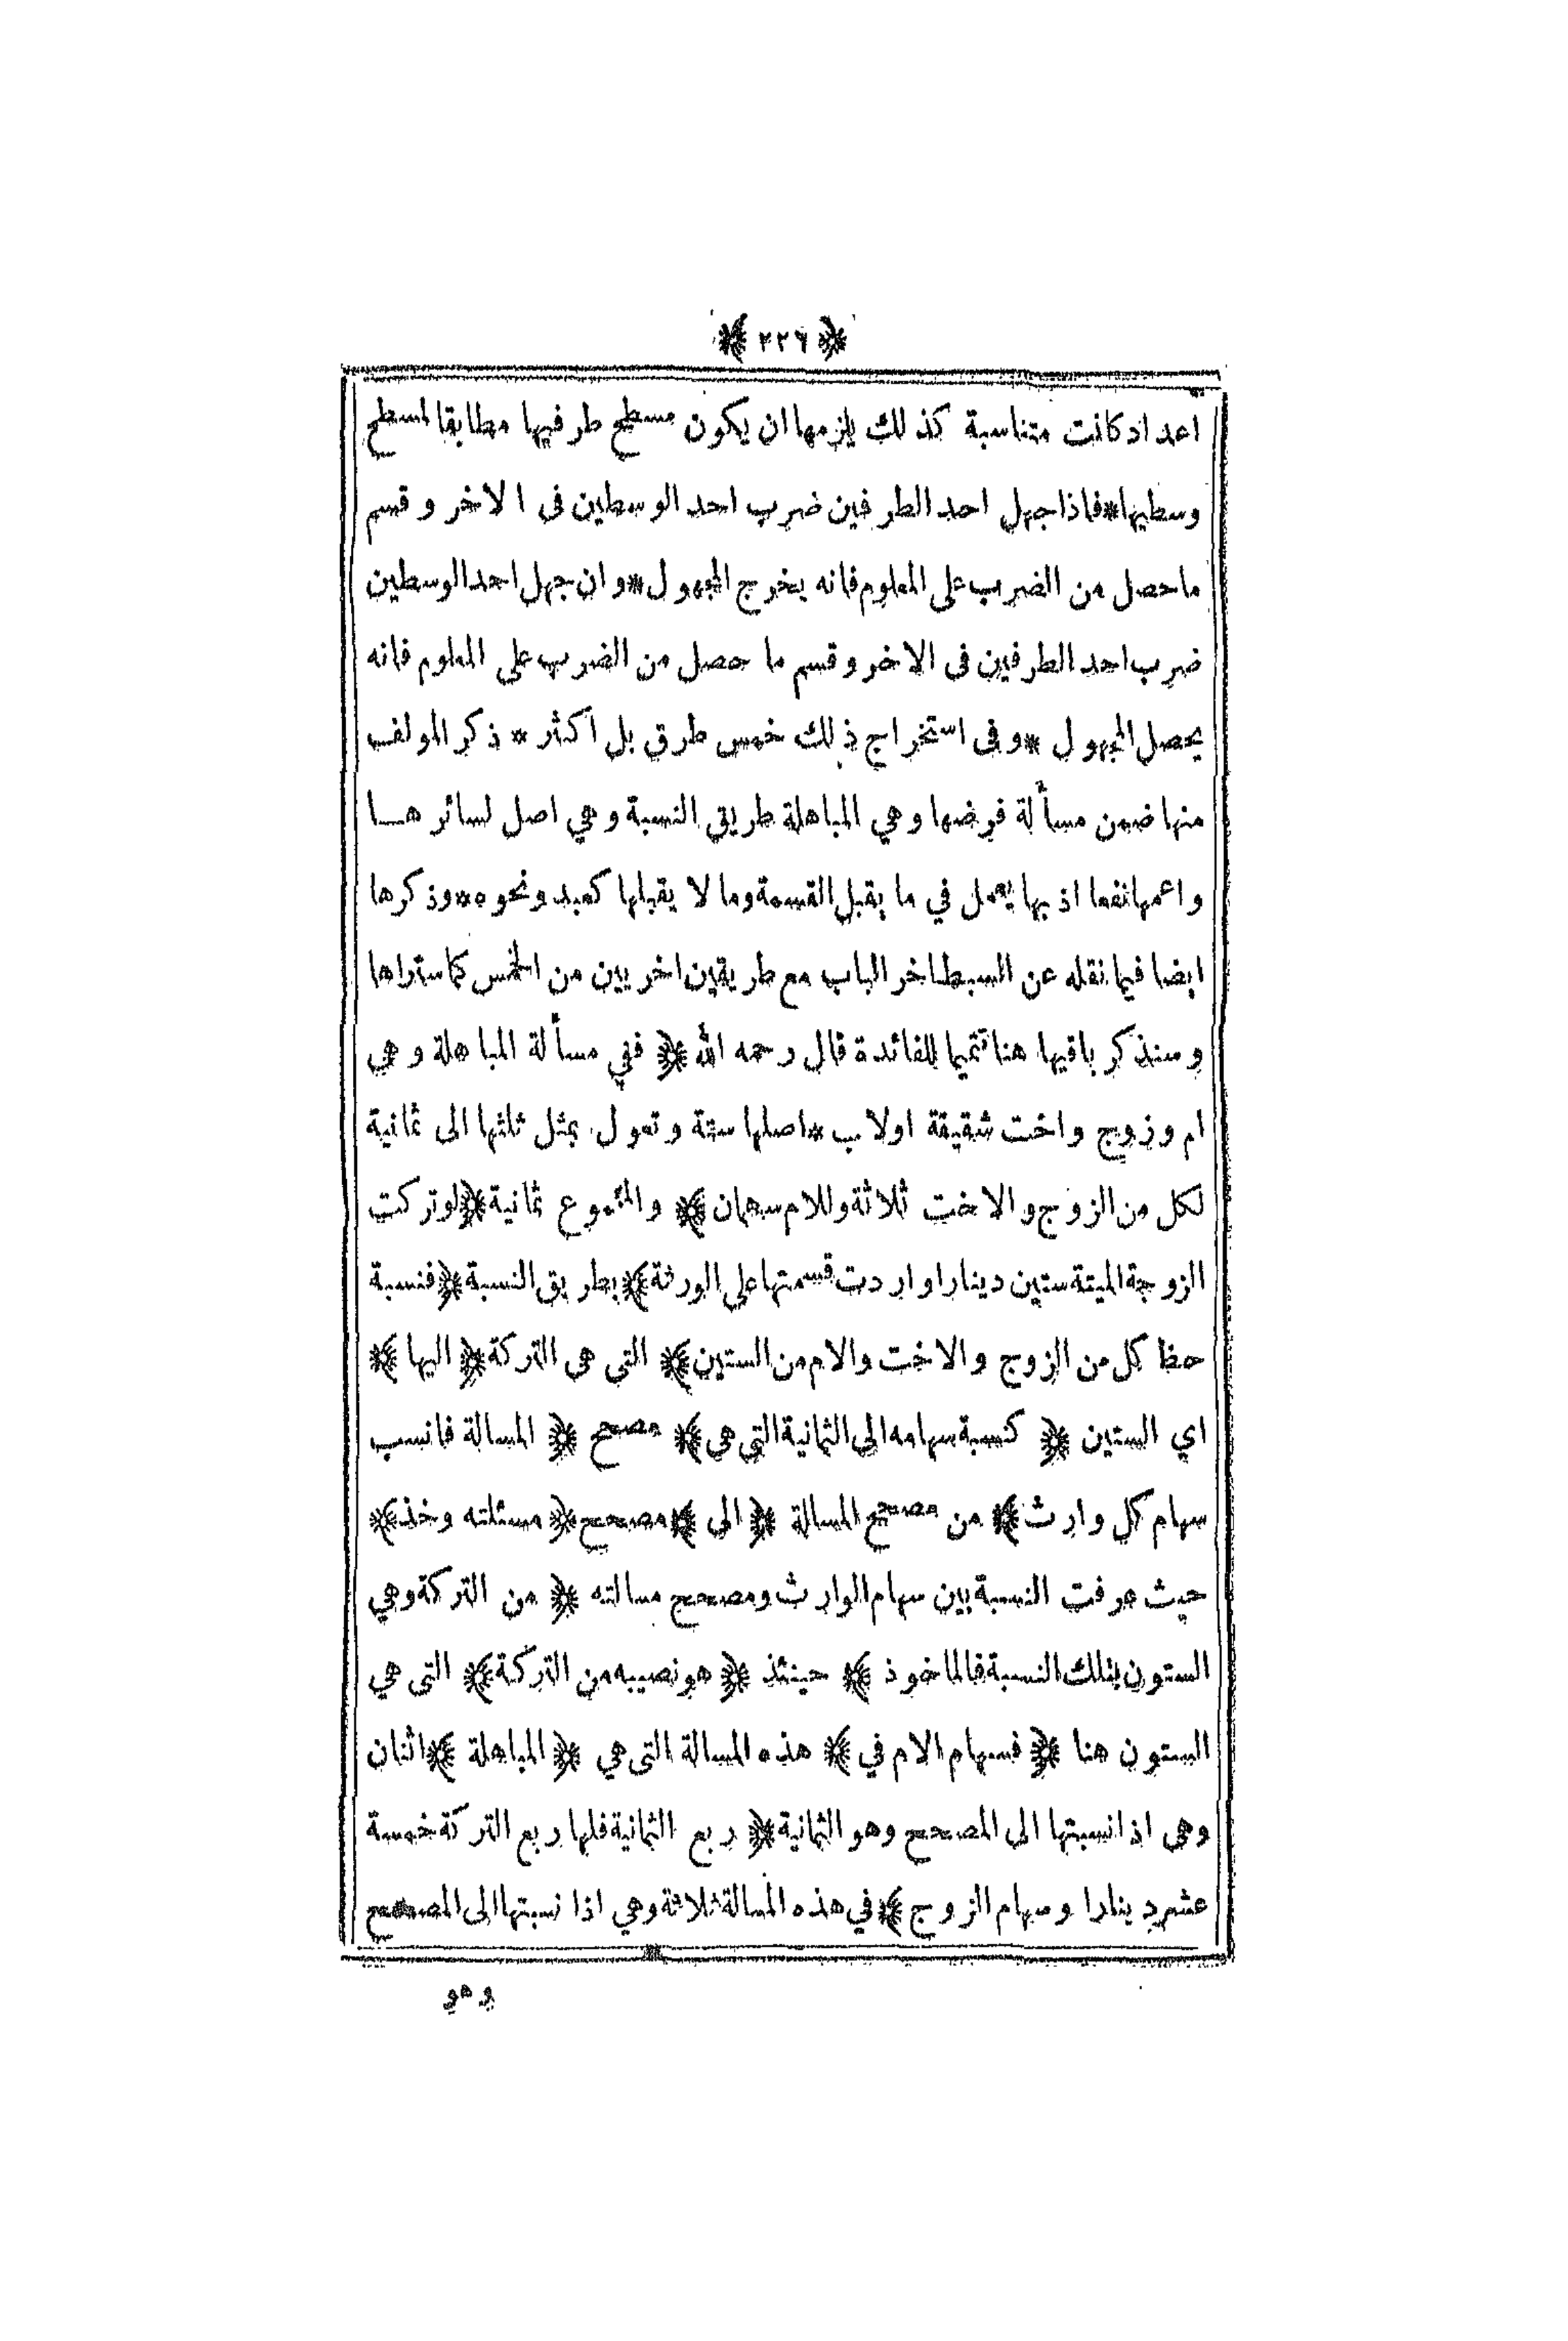 ﴿ ٢٢٦ ﴾
اعداد كانت متناسبة كذلك يلزمها ان يكون مسطح طرفيها مطابقا لمسطح
وسطيها*فاذا جهل احد الطرفين ضرب احد الوسطين فى الاخر وقسم
ما حصل من الضرب على المعلوم فانه يخرج المجهول*وان جهل احد الوسطين
ضرب احد الطرفين فى الاخر وقسم ما حصل من الضرب على المعلوم فانه
يحصل المجهول *وفى استخراج ذلك خمس طرق بل اكثر * ذكر المولف
منها ضمن مسألة فرضها وهي المباهلة طريق النسبة وهي اصل لسائرها
واعمها نفعا اذ بها يعمل في ما يقبل القسمة وما لا يقبلها كعبد ونحوه**وذكرها
ايضا فيما نقله عن السبط اخر الباب مع طريقين اخريين من الخمس كما ستراها
وسنذكر باقيها هنا تتميما للفائدة قال رحمه الله ﴿ ففي مسألة المباهلة وهي
ام وزوج واخت شقيقة او لاب*اصلها ستة وتعول بمثل ثلثها الى ثمانية
لكل من الزوج والاخت ثلاثة وللام سهمان ﴾ والمجموع ثمانية ﴿ لو تركت
الزوجة الميتة ستين دينارا واردت قسمتها على الورثة ﴾ بطريق النسبة ﴿ فنسبة
حظ كل من الزوج والاخت والام من الستين ﴾ التى هى التركة ﴿ اليها ﴾
اي الستين ﴿ كنسبة سهامه الى الثمانية التي هي ﴾ مصحح ﴿ المسالة فانسب
سهام كل وارث ﴾ من مصحح المسالة ﴿ الى ﴾ مصحح ﴿ مسئلته وخذ ﴾
حيث عرفت النسبة بين سهام الوارث ومصحح مسالته ﴿ من التركة وهي
الستون بتلك النسبة فالماخوذ ﴾ حينئذ ﴿ هو نصيبه من التركة ﴾ التى هي
الستون هنا ﴿ فسهام الام في ﴾ هذه المسالة التى هي ﴿ المباهلة ﴾ اثنان
وهى اذا نسبتها الى المصحح وهو الثمانية ﴿ ربع الثمانية فلها ربع التركة خمسة
عشر دينارا وسهام الزوج ﴾ في هذه المسالة ثلاثة وهي اذا نسبتها الى المصحح
وهو